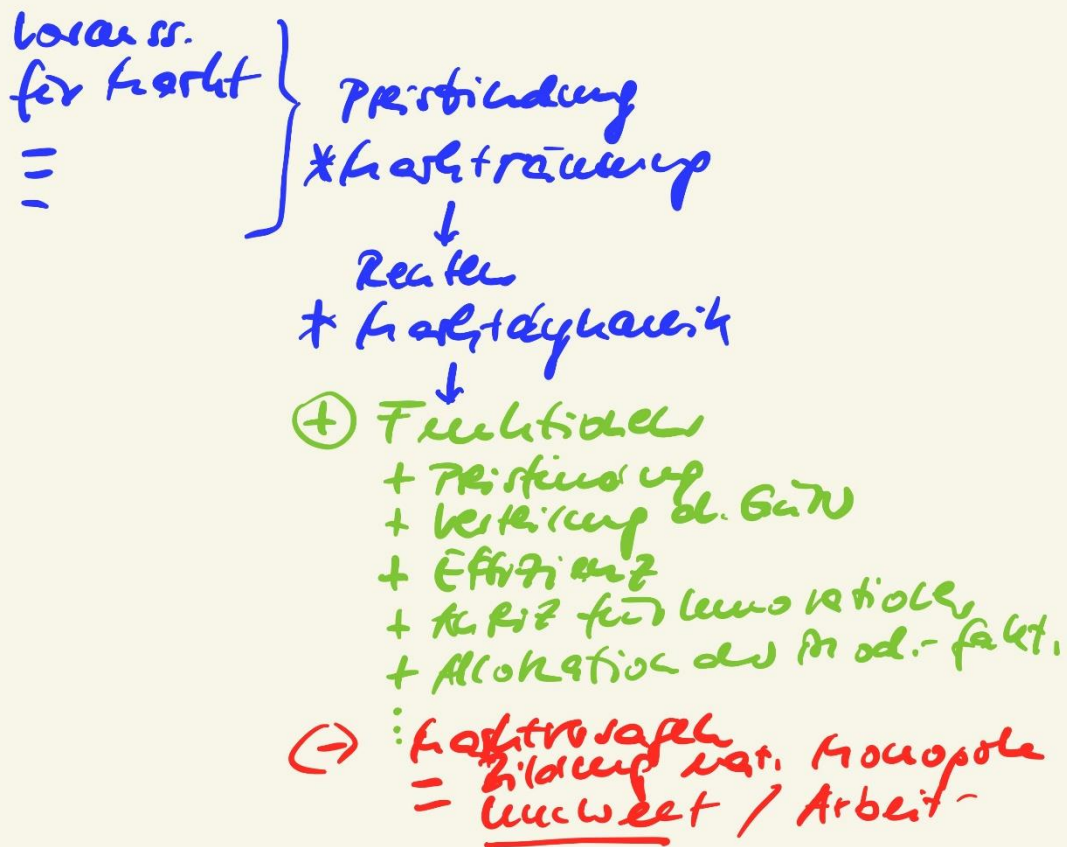 Vorauss.
für Markt
Preisfindung
* Markträumung
↓
Renten
* Marktdynamik
↓
+ Funktionen
+ Preisfindung
+ Verteilung d. GüN
+ Effizienz
+ Anreiz für Innovationen
+ Allokation der Prod.-fakt.
⋮
(-) Marktversagen
- Bildung nat. Monopole
- Umwelt / Arbeit-